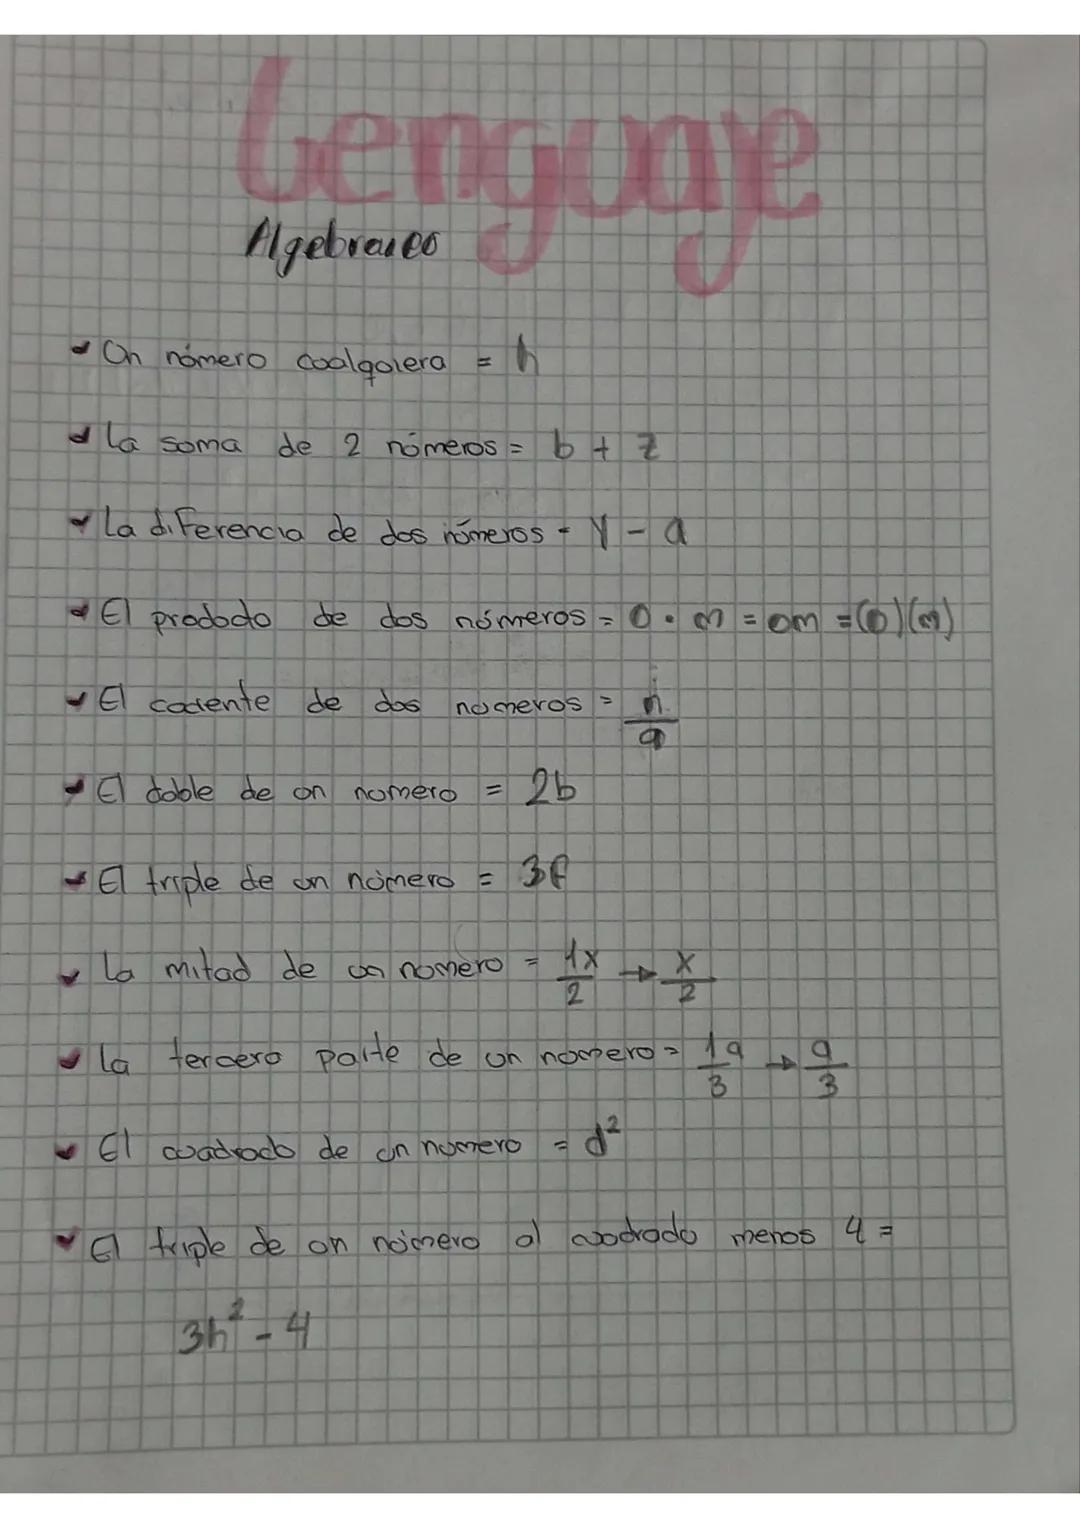 Lenguaje
Algebraico
Un número cualquiera = h
La suma de 2 números = b + z
La diferencia de dos números = y - a
El producto de dos números = o · m = om = (o)(m)
El cociente de dos números = n/q
El doble de un numero = 2b
El triple de un número = 3f
La mitad de un número = 1x/2 → x/2
La tercera parte de un numero = 1q/3 → q/3
El cuadrado de un numero = d²
El triple de un número al cuadrado menos 4 =
3h² - 4